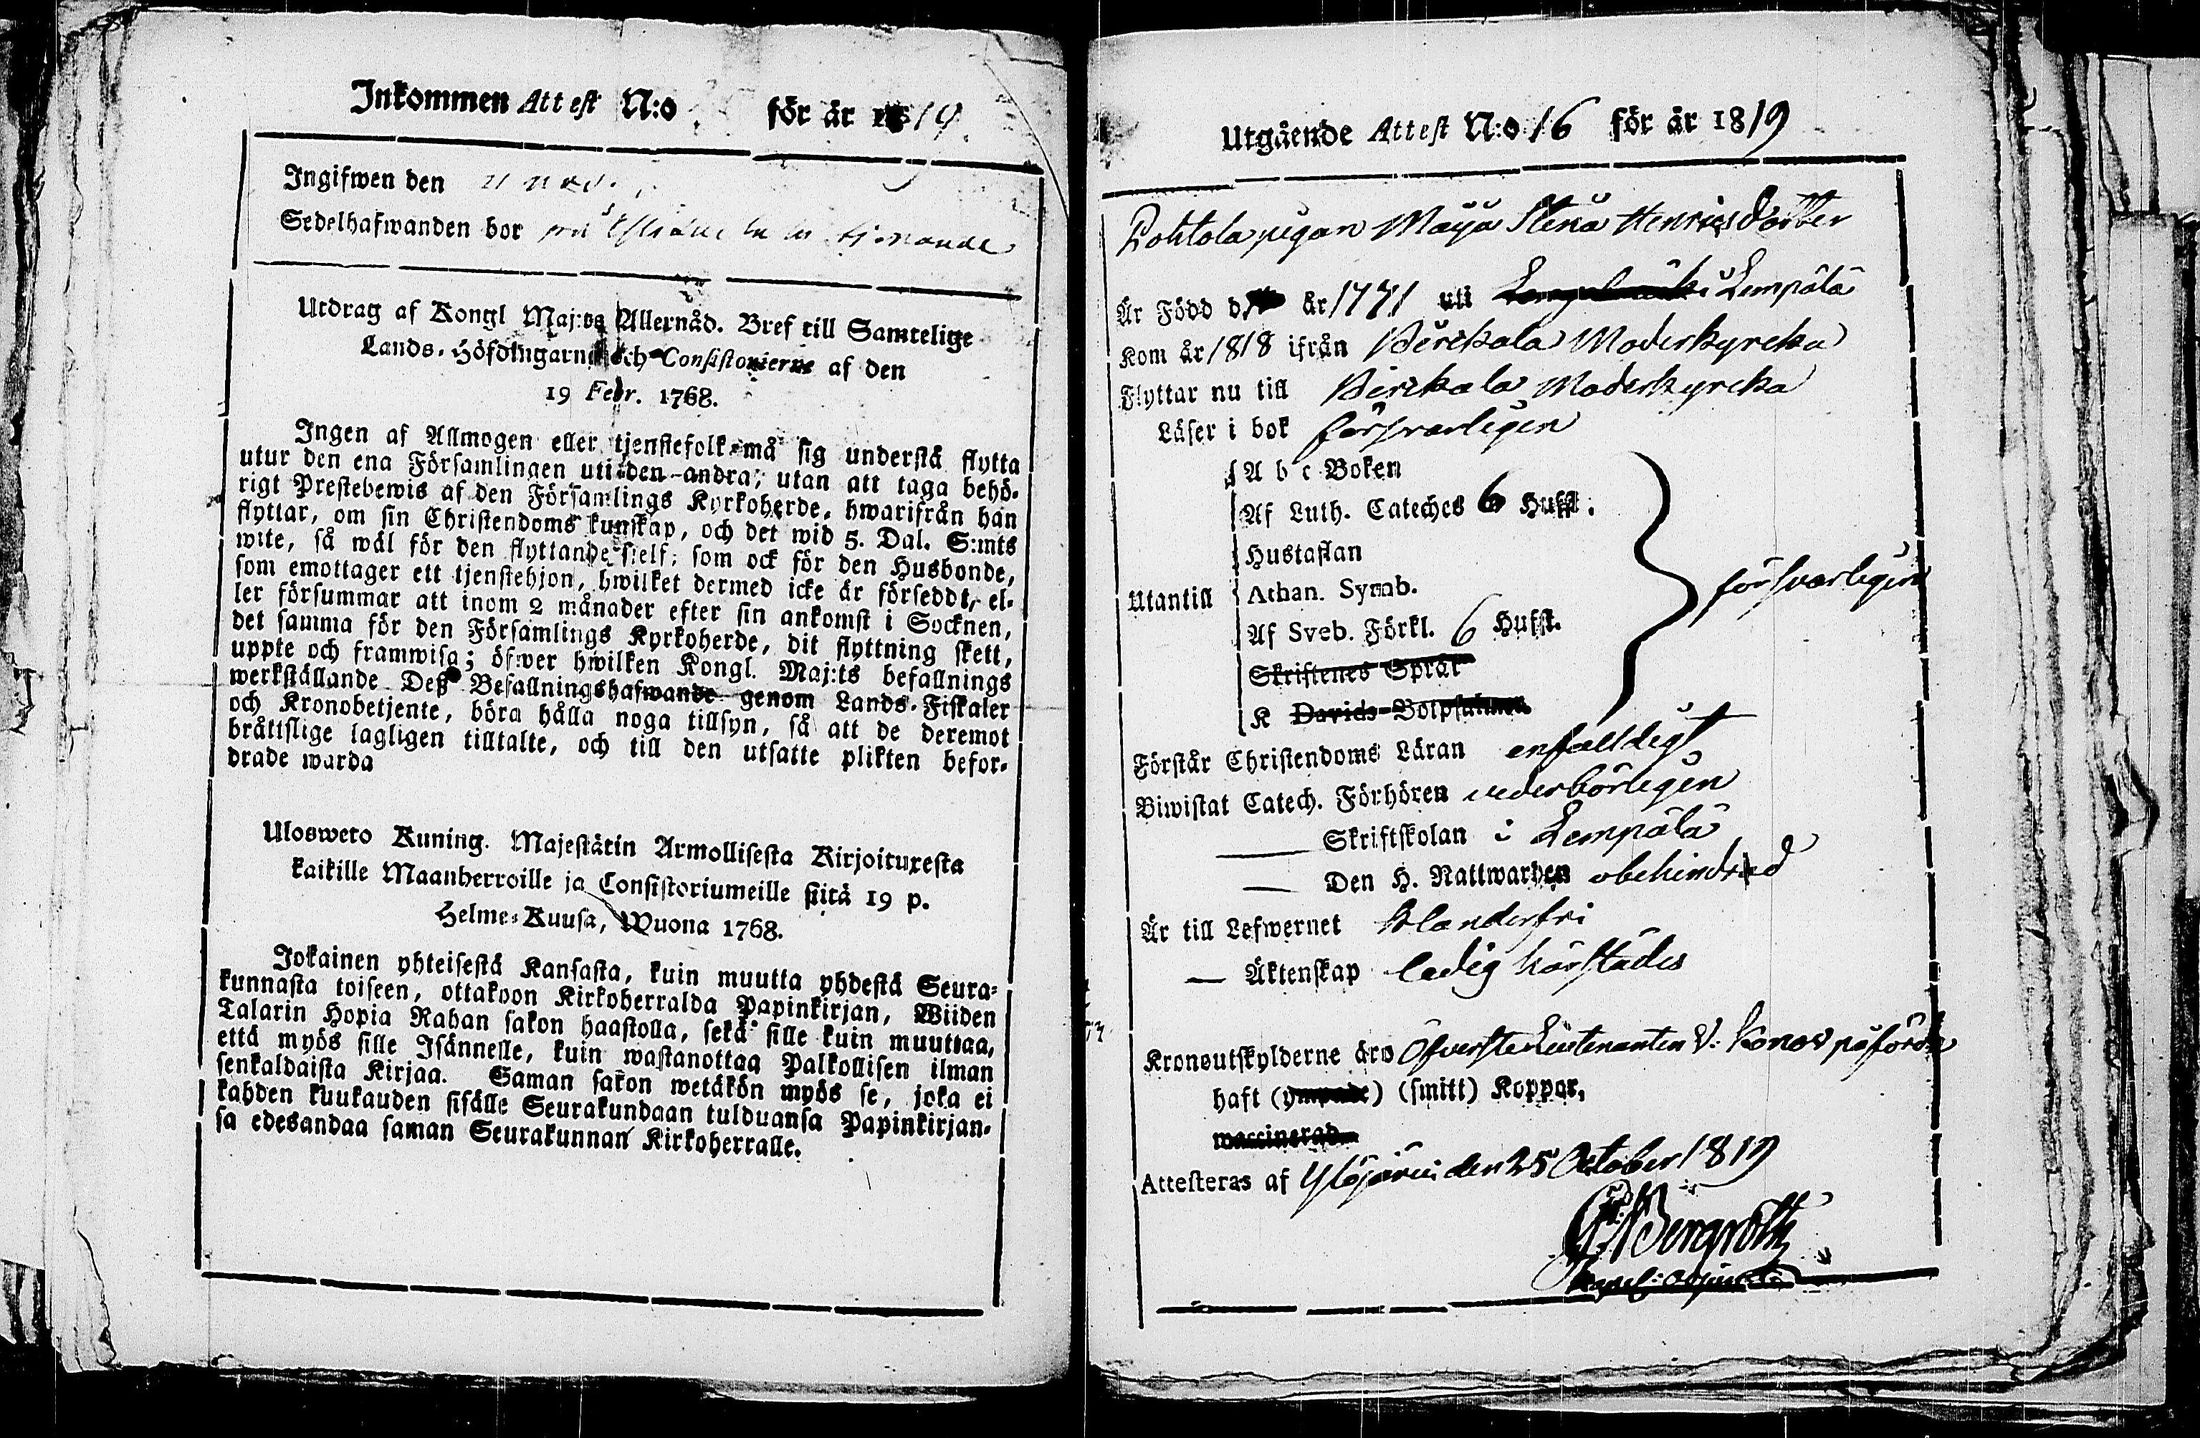 Inkommen Attest N:o för år 1819
Ingifwen den 21 nov.
Sedelhafwanden bor på tjenande
Utdrag af Kongl Maj:ts Allernåd. Bref till Samtelige
Lands-Höfdingarne och Consistorierne af den
19 Febr. 1768.
Ingen af Allmogen eller tjenstefolk må sig understå flytta
utur den ena Församlingen uti den andra, utan att taga behö-
rigt Prestebewis af den Församlings Kyrkoherde, hwarifrån han
flyttar, om sin Christendoms kunskap, och det wid 5. Dal. S:mts
wite, så wäl för den flyttande sielf, som ock för den Husbonde,
som emottager ett tjenstehjon, hwilket dermed icke är förseddt, el-
ler försummar att inom 2 månader efter sin ankomst i Socknen,
det samma för den Församlings Kyrkoherde, dit flyttning skett,
uppte och framwisa; öfwer hwilken Kongl. Maj:ts befallnings
werkställande Deß Befallningshafwande genom Lands-Fiskaler
och Kronobetjente, böra hålla noga tillsyn, så att de deremot
bråttslige lagligen tilltalte, och till den utsatte plikten befor-
drade warda
Ulosweto Kuning. Majestätin Armollisesta Kirjoituxesta
kaikille Maanherroille ja Consistoriumeille siitä 19 p.
Helme-Kuusa, Wuona 1768.
Jokainen yhteisestä Kansasta, kuin muutta yhdestä Seura-
kunnasta toiseen, ottakoon Kirkoherralda Papinkirjan, Wiiden
Talarin Hopia Rahan sakon haastolla, sekä sille kuin muuttaa,
että myös sille Isännelle, kuin wastanottaa Palkollisen ilman
senkaldaista Kirjaa. Saman sakon wetäkön myös se, joka ei
kahden kuukauden sisälle Seurakundaan tulduansa Papinkirjan-
sa edesandaa saman Seurakunnan Kirkoherralle.
Utgående Attest N:o 16 för år 1819
Pohtola pigan Maija Stena Henricsdotter
Är Född d. år 1771 uti Lempälä
Kom år 1818 ifrån Birckala Moderkyrcka
Flyttar nu till Birckala Moderkyrcka
Läser i bok försvarligen
A b c Boken
Af Luth. Cateches 6 Hufst.
Hustaflan
Utantill Athan. Symb. försvarligen
Af Sveb. Förkl. 6 Hufst.
Skriftenes Språk
K Davids Botpsalmer
Förstår Christendoms Läran enfalldigt
Biwistat Catech. Förhören vederbörligen
Skriftskolan i Lempälä
Den H. Nattwarden obehindrad
Är till Lefwernet klanderfri
Äktenskap ledig härstädes
Kronoutskylderne äro Öfverste Lieutenanten V. Konov påförde
haft (ympade) (smitt) Koppor,
waccinerad
Attesteras af Ylöjärvi den 25 October 1819
Bergroth